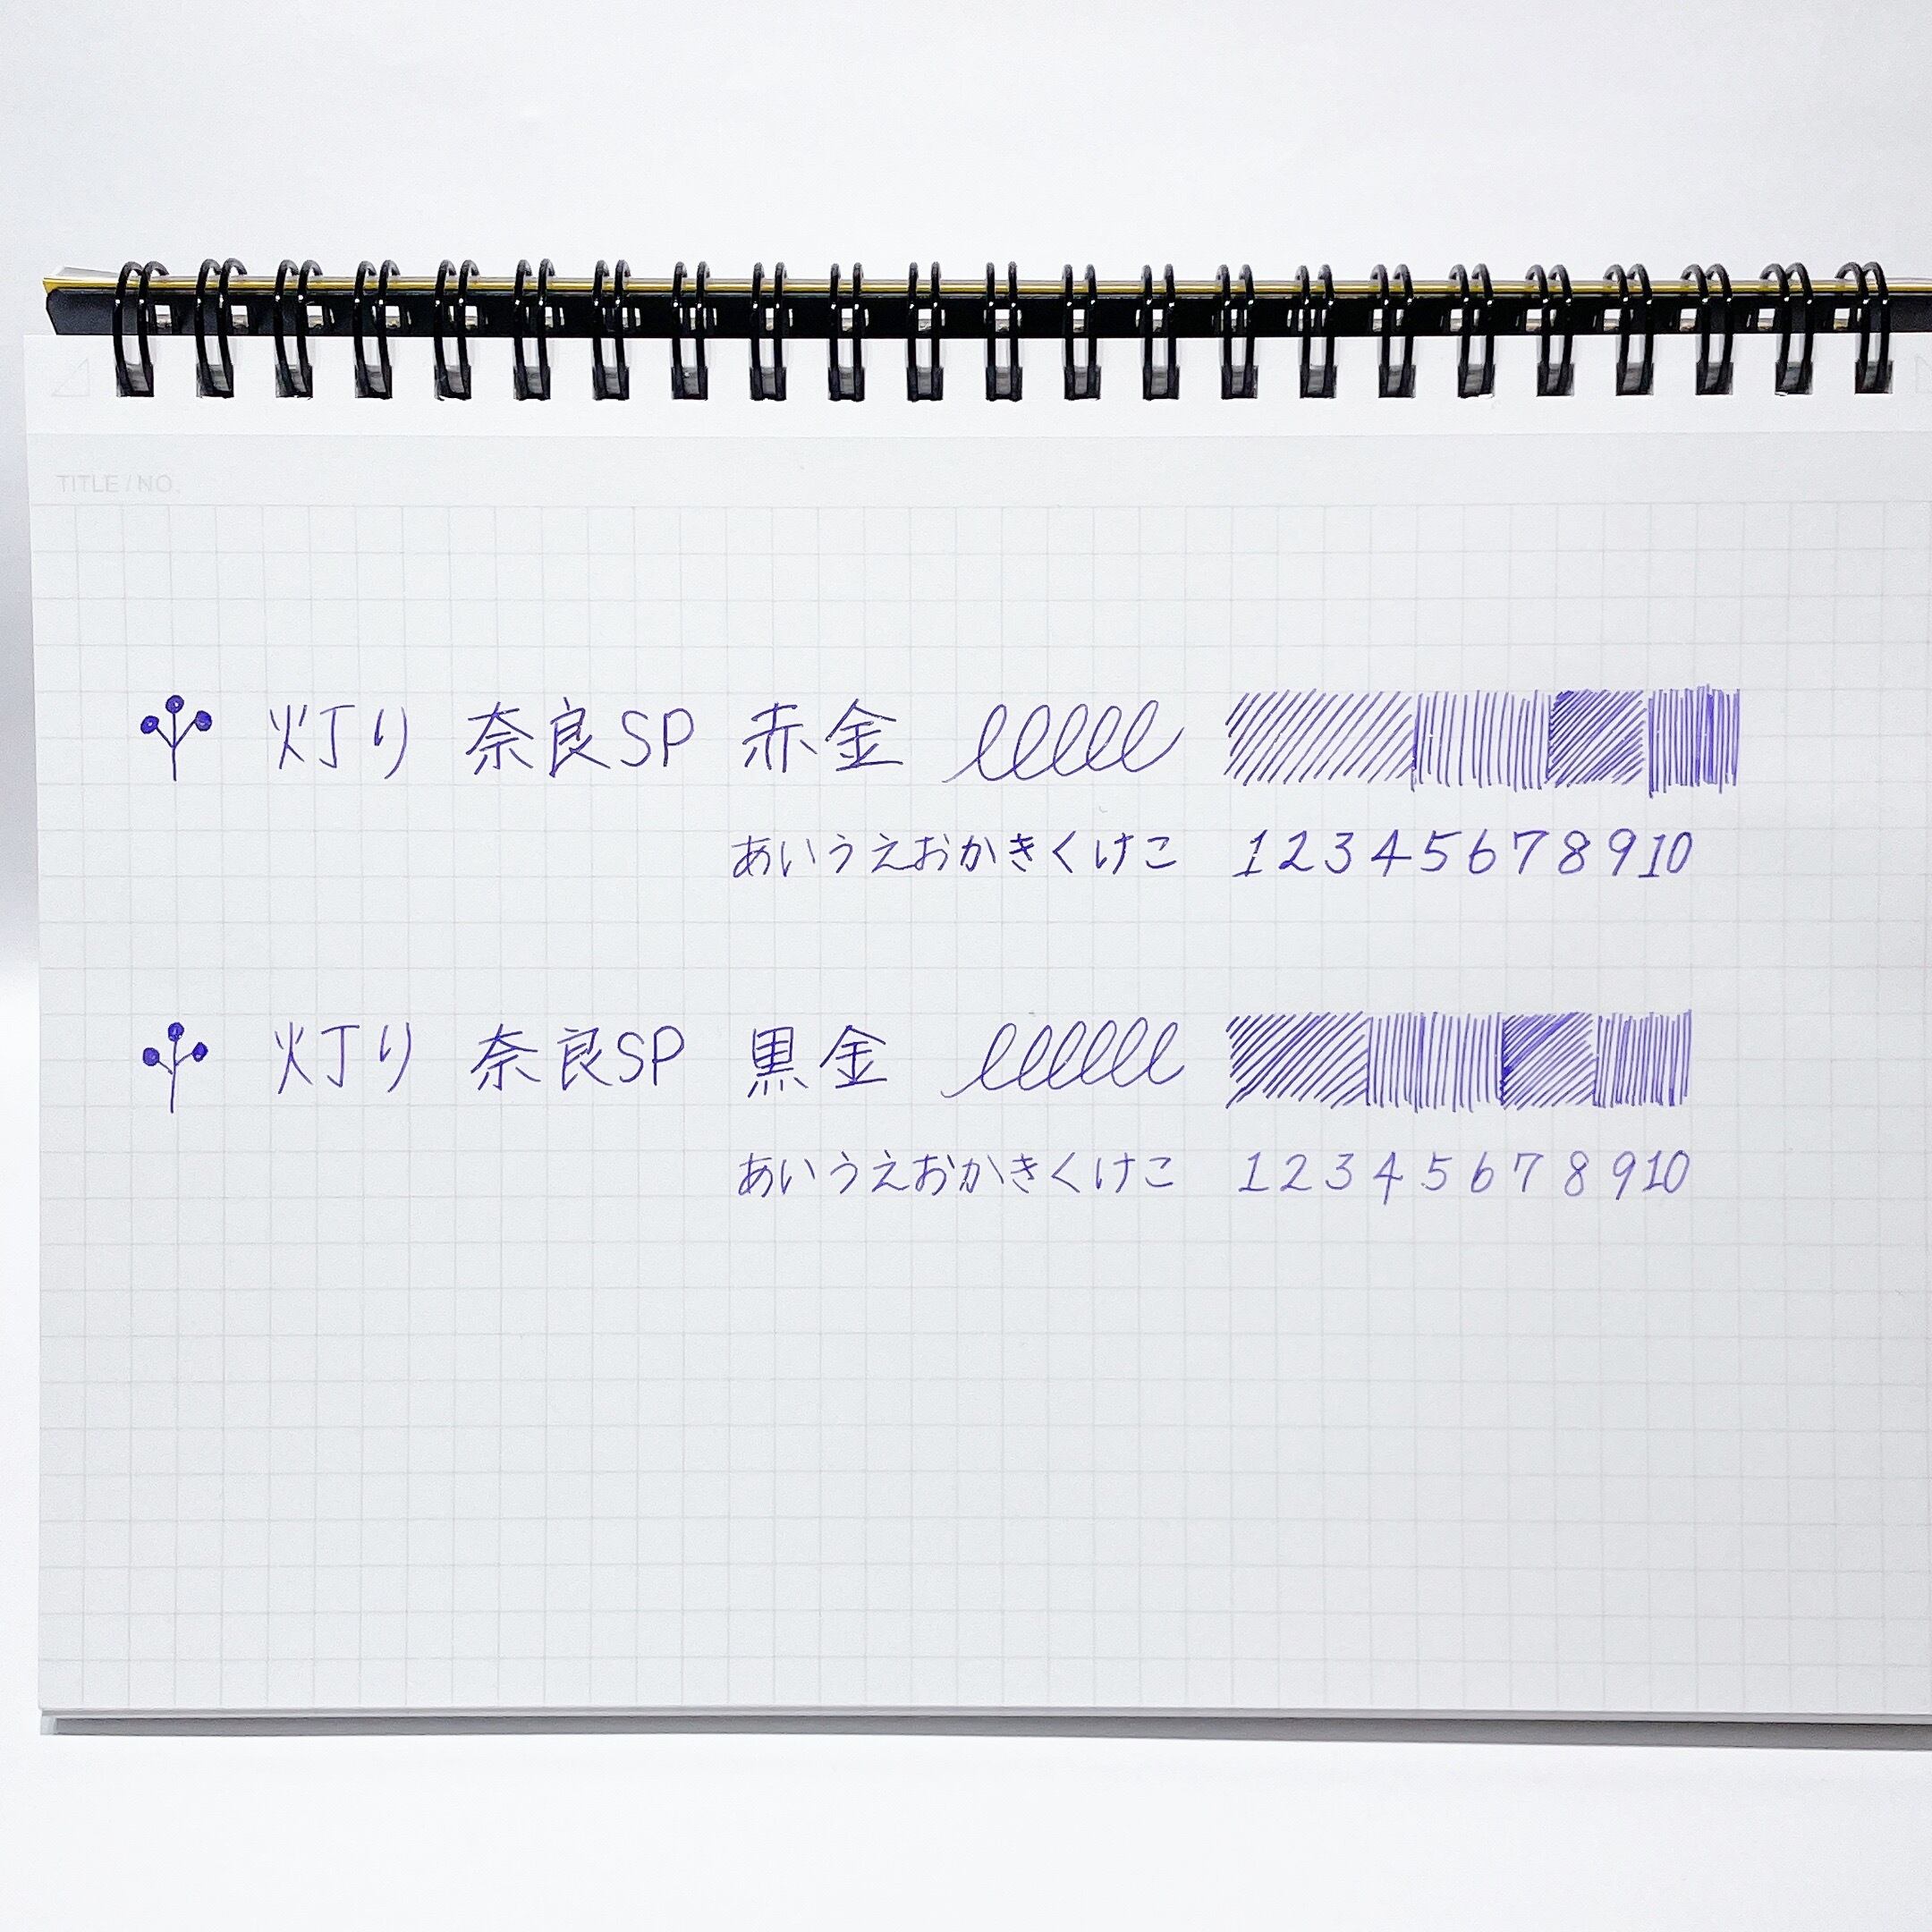 TITLE / NO.
灯り 奈良SP 赤金
あいうえおかきくけこ 1 2 3 4 5 6 7 8 9 10
灯り 奈良SP 黒金
あいうえおかきくけこ 1 2 3 4 5 6 7 8 9 10